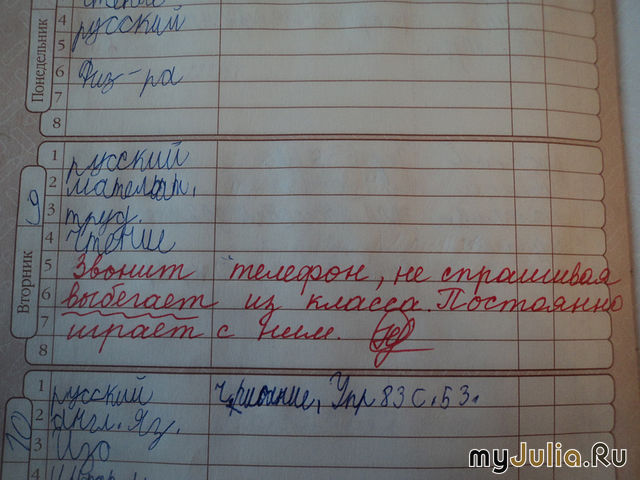 чтение
Понедельник
4 русский
5
6 Физ-ра
7
8
Вторник 9
1 русский
2 матем.
3 труд.
4 чтение
5 Звонит телефон, не спрашивая
6 выбегает из класса. Постоянно
7 играет с ним.
8
10
1 русский Упр 83 с. 53.
2 англ. яз.
3 Изо
4
myJulia.Ru